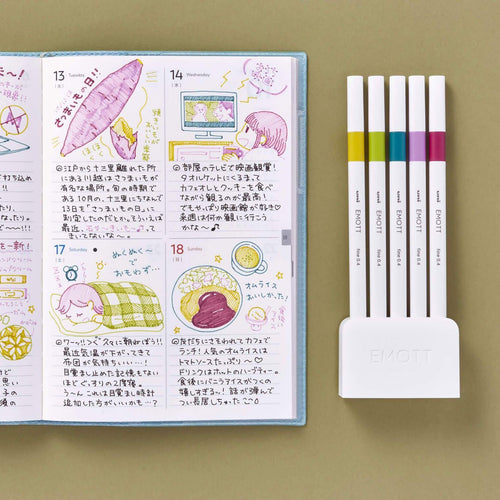 13 Tuesday
(火)
さつまいもの日!!
ほくほく
焼きいもが
おいしい季節
◎江戸から十三里離れた所
にある川越はさつまいもが
有名な場所。旬の時期で
ある10月の、十三里にちなんで
13日を"さつまいもの日"に
制定したのだとか。そういえば
最近、
14 Wednesday
(水)
◎部屋のテレビで映画観賞!
タオルケットにくるまって
カフェオレとクッキーを食べ
ながら観るのが最高!
でもやっぱり映画館が好き♡
来週は何か観に行こう
かな〜♪
17 Saturday
(土)
ぬぬく〜で
おもわず…
◎ワーッ!!つぐ
最近気温が下がってきて
布団が気持ちいい…!
目覚まし止めた記憶もない
ほどぐっすりの2度寝。
う〜んこれは目覚まし時計
追加した方がいいかも…?
18 Sunday
(日)
オムライス
おいしかった!
食後に
バニラアイス
◎友だちにさそわれてカフェで
ランチ!人気のオムライスは
トマトソースたっぷり〜♡
ドリンクはホットのハーブティー。
食後にバニラアイスがつくの
嬉しすぎるッ!話が弾んで
つい長居しちゃった
uni EMOTT fine 0.4
uni EMOTT fine 0.4
uni EMOTT fine 0.4
uni EMOTT fine 0.4
uni EMOTT fine 0.4
EMOTT